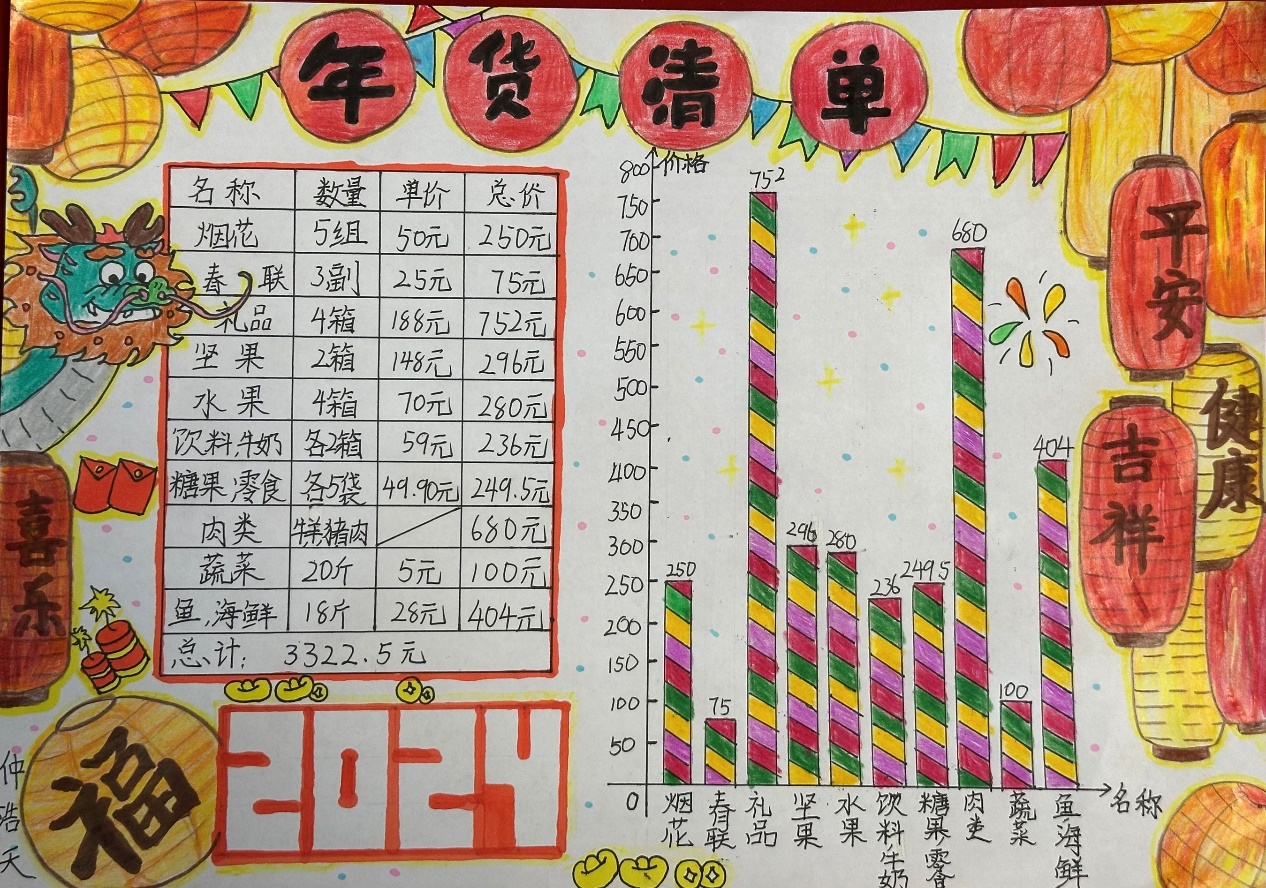 年货清单
名称 数量 单价 总价
烟花 5组 50元 250元
春联 3副 25元 75元
礼品 4箱 188元 752元
坚果 2箱 148元 296元
水果 4箱 70元 280元
饮料,牛奶 各2箱 59元 236元
糖果,零食 各5袋 49.90元 249.5元
肉类 牛羊猪肉 680元
蔬菜 20斤 5元 100元
鱼,海鲜 18斤 28元 404元
总计: 3322.5元
2024
价格
800
750
700
650
600
550
500
450
400
350
300
250
200
150
100
50
0
250
75
752
296
280
236
249.5
680
100
404
烟花
春联
礼品
坚果
水果
饮料牛奶
糖果,零食
肉类
蔬菜
鱼海鲜
名称
平安
健康
吉祥
喜乐
福
仲浩天